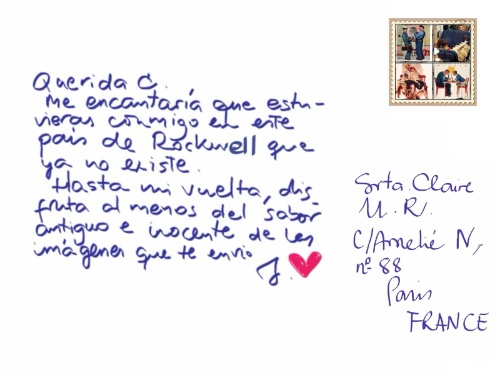 Querida C.
Me encantaría que estu-
vieras conmigo en este
país de Rockwell que
ya no existe.
Hasta mi vuelta, dis-
fruta al menos del sabor
antiguo e inocente de las
imágenes que te envío
J.
Srta. Claire
M. R.
C/Amelié N,
nº 88
Paris
FRANCE